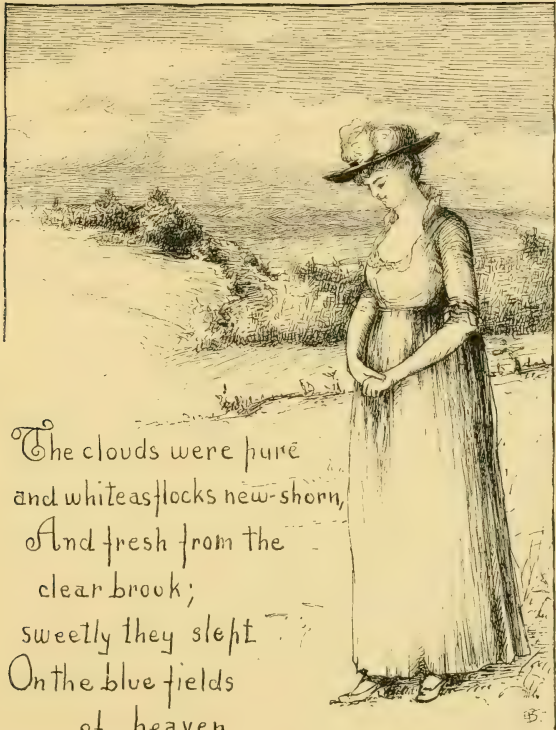 The clouds were pure
and white as flocks new-shorn,
And fresh from the
clear brook;
sweetly they slept
On the blue fields
of heaven
B.